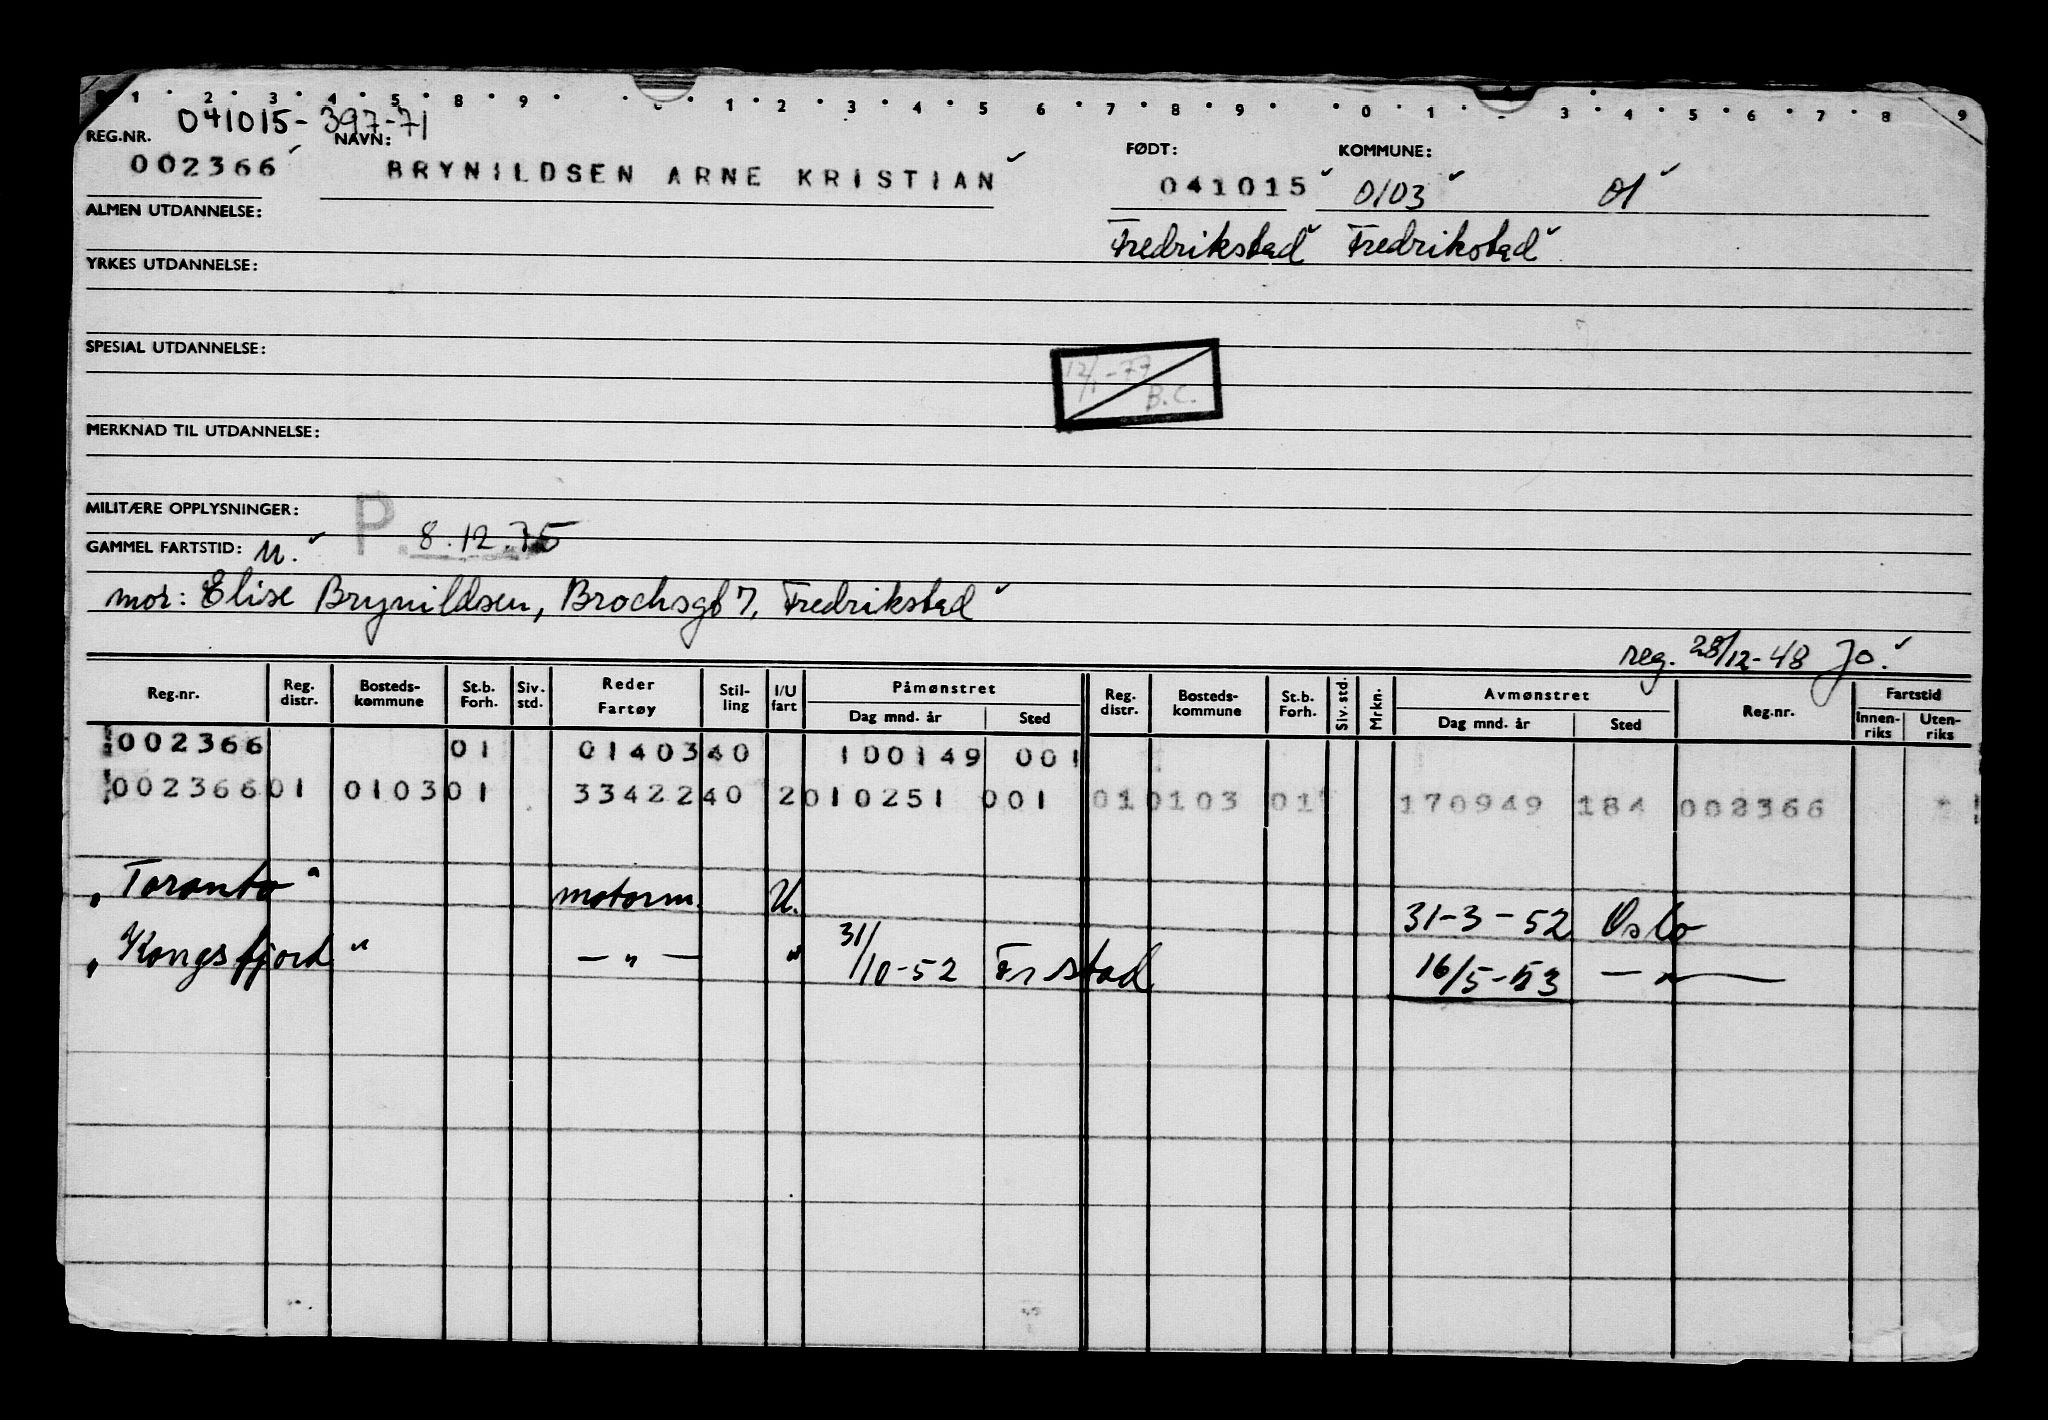 1 · 2 · 3 · 4 · 5 · 8 · 9 · 1 · 2 · 3 · 4 · 5 6 · 7 · 8 · 9 · 0 · 1 · 3 · 4 · 5 · 6 · 7 · 8 · 9
041015-397-71
REG.NR. NAVN: FØDT: KOMMUNE:
002366 BRYNILDSEN ARNE KRISTIAN 041015 0103 01
ALMEN UTDANNELSE: Fredrikstad Fredrikstad
YRKES UTDANNELSE:
SPESIAL UTDANNELSE:
12/1-77
B.C.
MERKNAD TIL UTDANNELSE:
MILITÆRE OPPLYSNINGER: P
GAMMEL FARTSTID: U. 8.12.75
mor: Elise Brynildsen, Brochsgt 7, Fredrikstad
reg. 28/12-48 Jo.
Reg.nr. Reg. distr. Bosteds-kommune St.b. Forh. Siv. std. Reder Fartøy Stil-ling I/U fart Påmønstret Dag mnd. år Sted Reg. distr. Bosteds-kommune St.b. Forh. Siv. std. Mrkn. Avmønstret Dag mnd. år Sted Reg.nr. Fartstid Innen-riks Uten-riks
002366 01 01403 40 100149 001
002366 01 0103 01 33422 40 2 010251 001 01 0103 01 170949 184 002366
„Toronto" motorm. U. 31-3-52 Oslo
„Kongsfjord" — „ — " 31/10-52 Frstad 16/5-53 — „ —